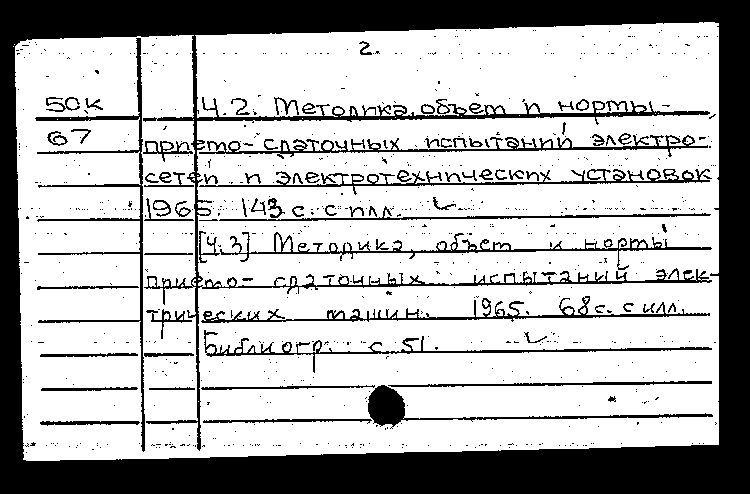 2.
50к Ч.2. Методика, объем и нормы
67 приемо-сдаточных испытаний электро-
сетей и электротехнических установок
1965. 143 с. с илл.
[Ч.3] Методика, объем и нормы
приемо-сдаточных испытаний элек-
трических машин. 1965. 68 с. с илл.
Библиогр.: с. 51.